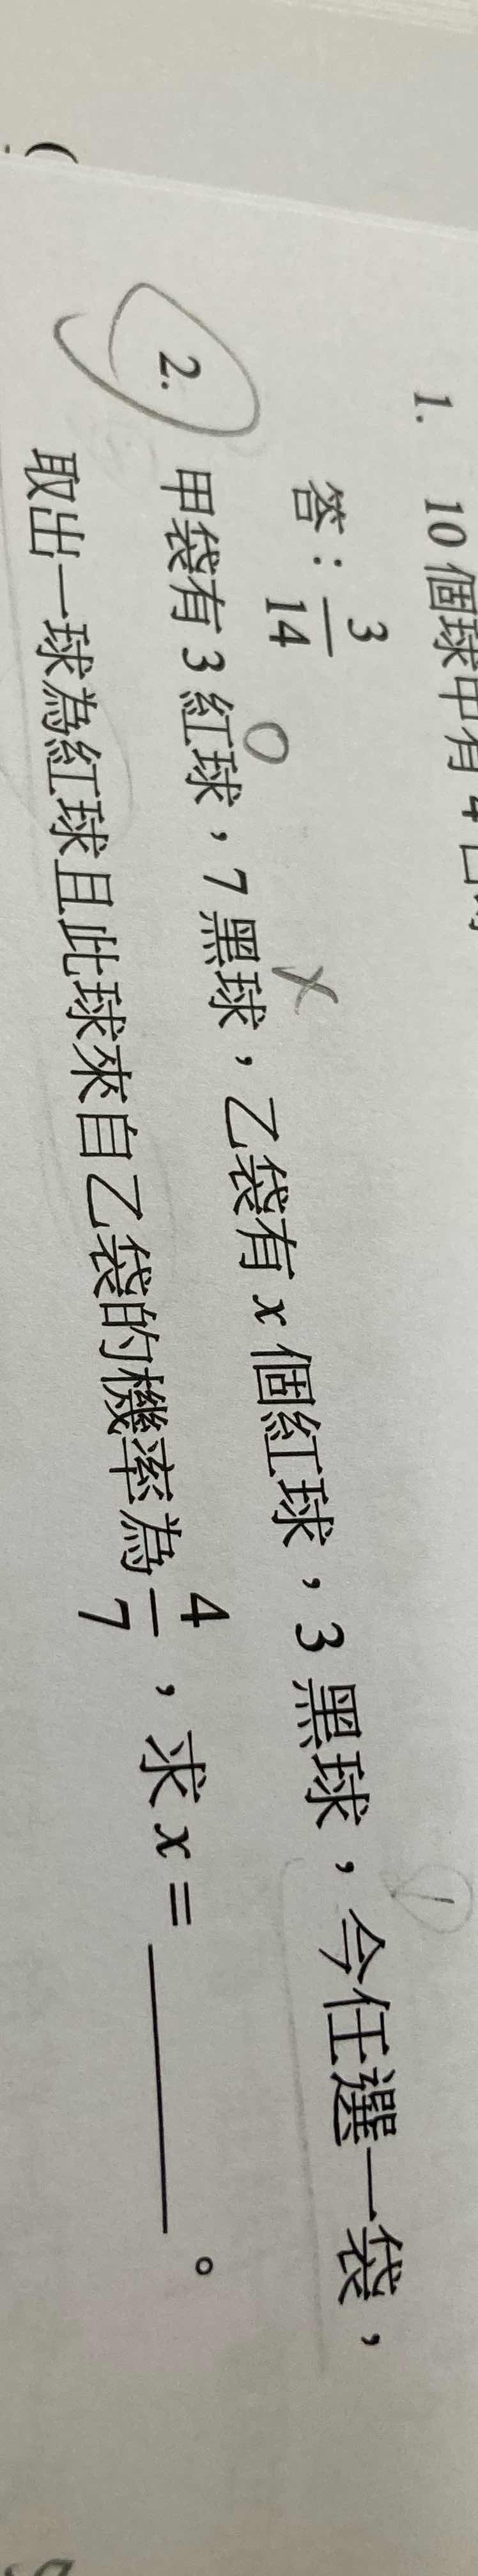 1. 10 個球中有 4 白球
答：3/14
2. 甲袋有 3 紅球，7 黑球，乙袋有 x 個紅球，3 黑球，今任選一袋，
取出一球為紅球且此球來自乙袋的機率為 4/7，求 x = ______。